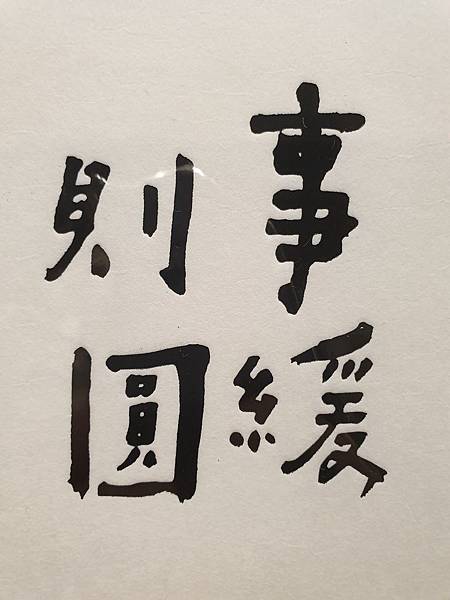 事緩
則圓